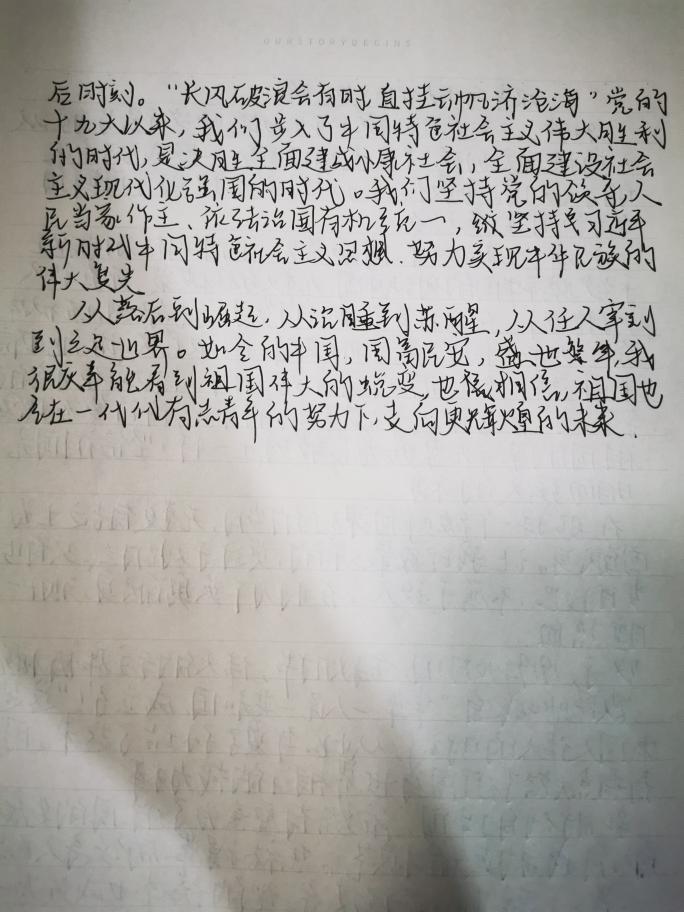 OURSTORYBEGINS
后时刻。“长风破浪会有时,直挂云帆济沧海”党的
十九大以来,我们步入了中国特色社会主义伟大胜利
的时代,是决胜全面建成小康社会,全面建设社会
主义现代化强国的时代。我们坚持党的领导,人
民当家作主、依法治国有机统一,坚持习近平
新时代中国特色社会主义思想.努力实现中华民族的
伟大复兴
从落后到崛起,从沉睡到苏醒,从任人宰割
到走近世界。如今的中国,国富民安,盛世华年,我
很庆幸能看到祖国伟大的蜕变,也很相信,祖国也
会在一代代有志青年的努力下,走向更辉煌的未来.